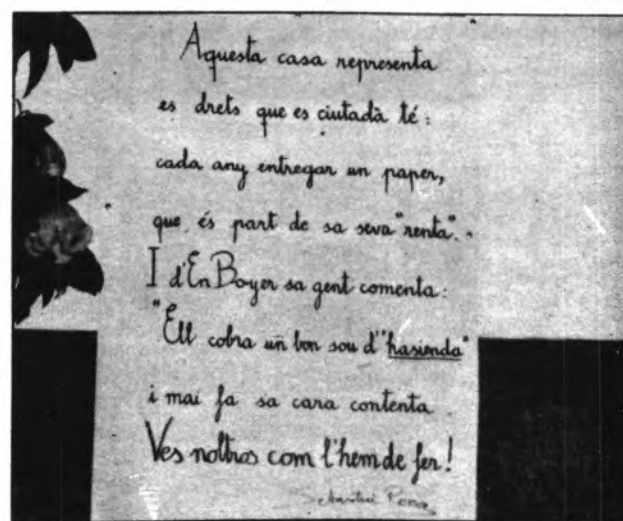 Aquesta casa representa
es drets que es ciutadà té:
cada any entregar un paper,
que és part de sa seva "renta".
I d'En Boyer sa gent comenta:
"Ell cobra un bon sou d'"hasienda"
i mai fa sa cara contenta.
Ves noltros com l'hem de fer!
Sebastià